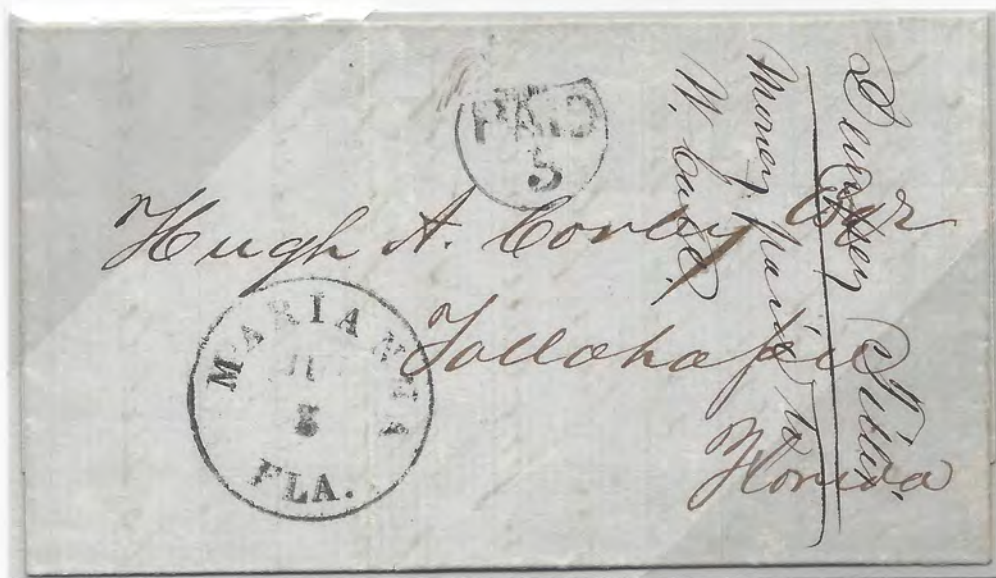 PAID
5
Hugh A. Corley Esqr
Tallahassee
Florida
MARIANNA
5
FLA.
Money paid to
W.